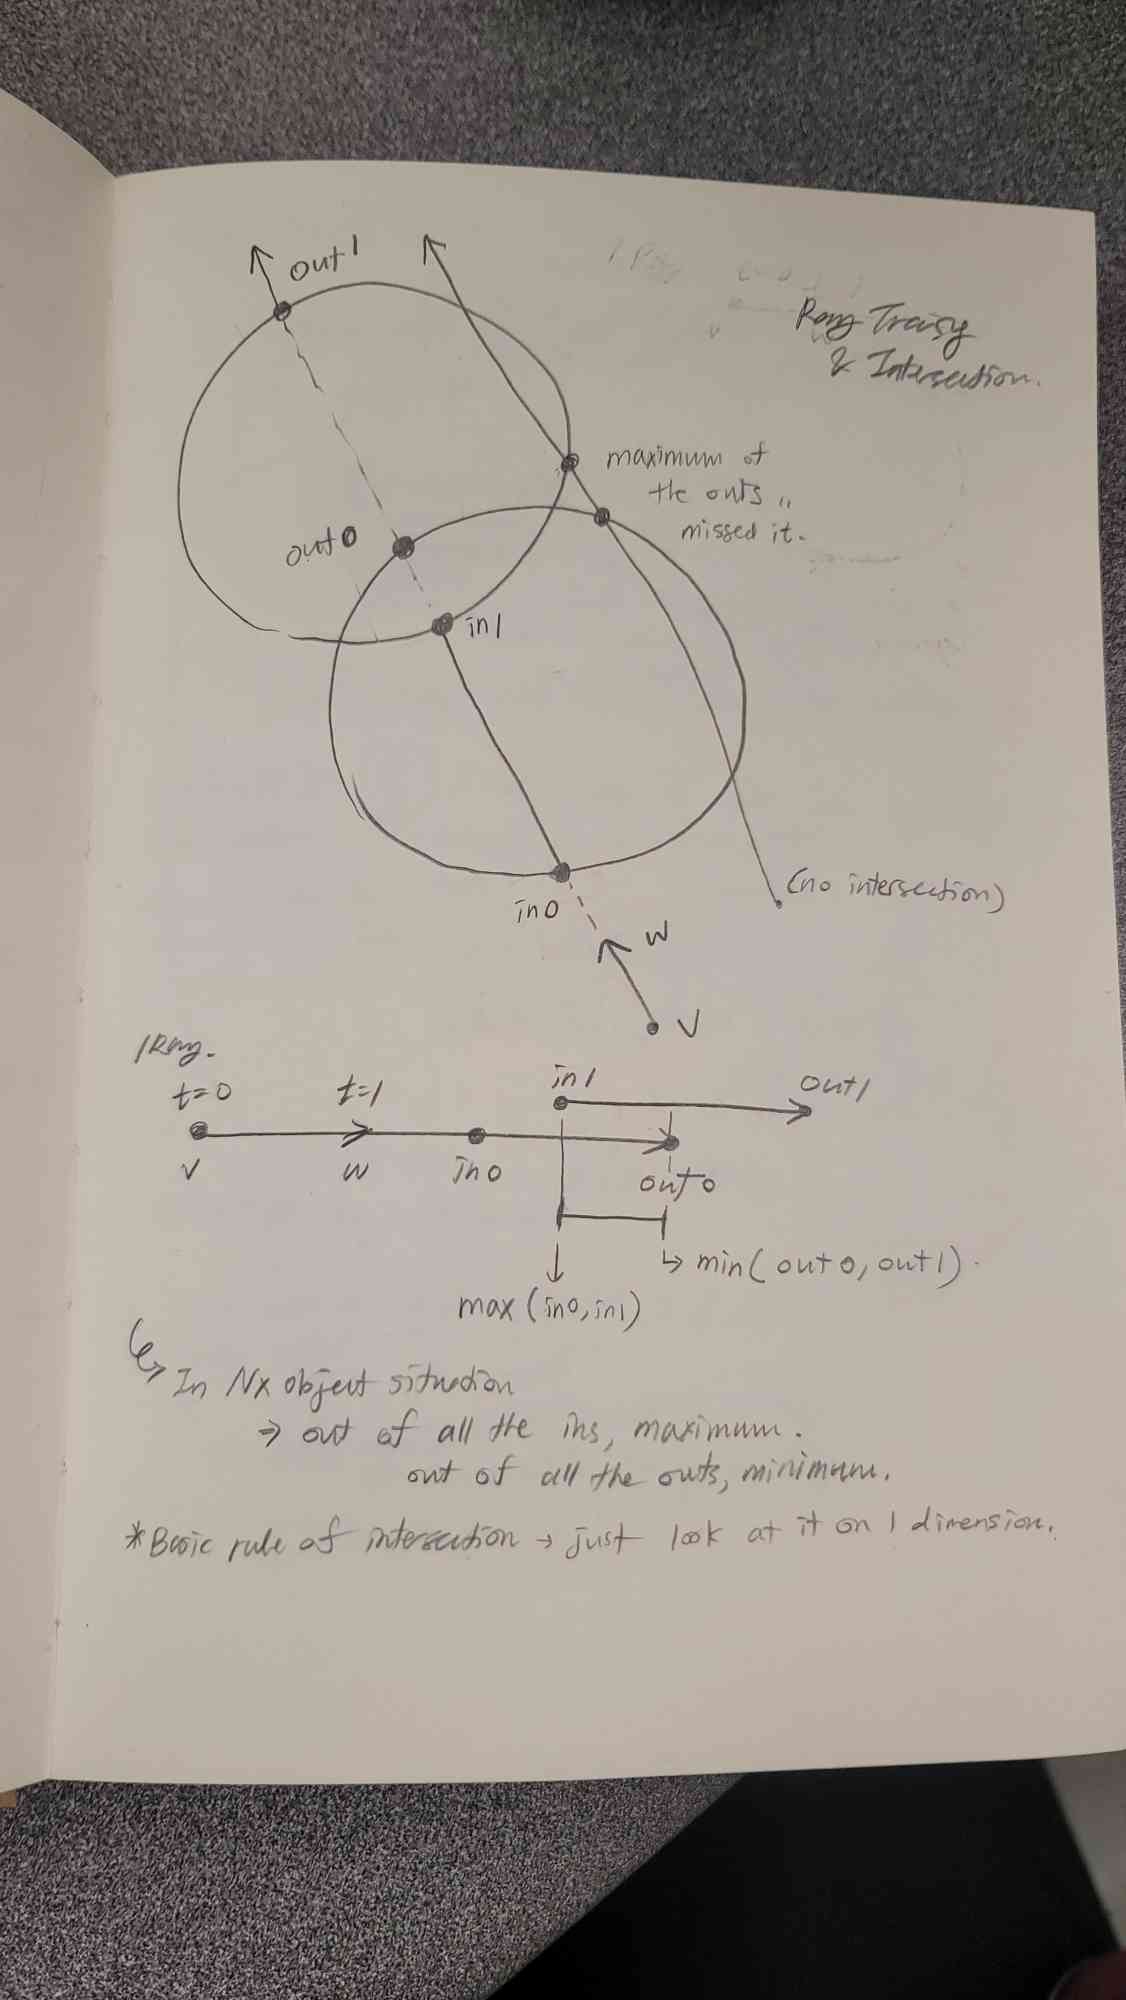 Ray Tracing
& Intersection.
out1
maximum of
the outs,,
missed it.
out0
in1
(no intersection)
in0
W
V
1Ray.
t=0 t=1 in1 out1
V W in0 out0
min(out0, out1).
max(in0, in1)
In Nx object situation
⇒ out of all the ins, maximum.
out of all the outs, minimum.
*Basic rule of intersection → just look at it on 1 dimension.